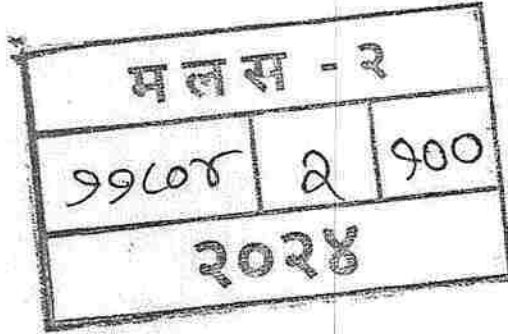 मलस - २
११८०४ २ १००
२०२४